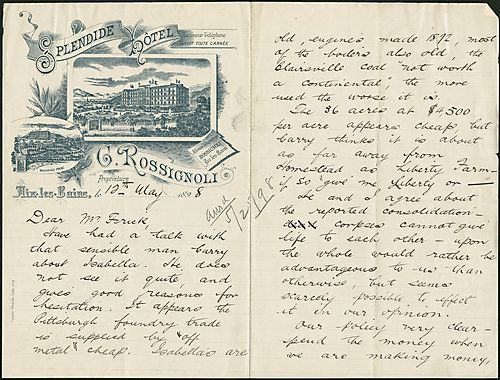 SPLENDIDE HÔTEL
Ascenseur Téléphone
OUVERT TOUTE L'ANNÉE
G. ROSSIGNOLI
Propriétaire
Aix-les-Bains, le 13th May 1898
ansd 5/25/98
Dear Mr Frick,
Have had a talk with
that sensible man Curry
about Isabella. He does
not see it quite, and
gives good reasons for
hesitation. It appears the
Pittsburgh foundry trade
is supplied by "off
metal" cheap. Isabellas are
old, engines made 1892, most
of the boilers also old, the
Blairsville coal "not worth
a continental", the more
used the worse it is.
The 36 acres at $4,500
per acre appears cheap, but
Curry thinks it is about
as far away from
Homestead as Liberty Farm—
if so, give me Liberty or —
He and I agree about
the reported consolidation.
corpses cannot give
life to each other — upon
the whole would rather be
advantageous to us than
otherwise, but seems
scarcely possible to effect
it in our opinion.
Our policy very clear—
spend the money when
we are making money,